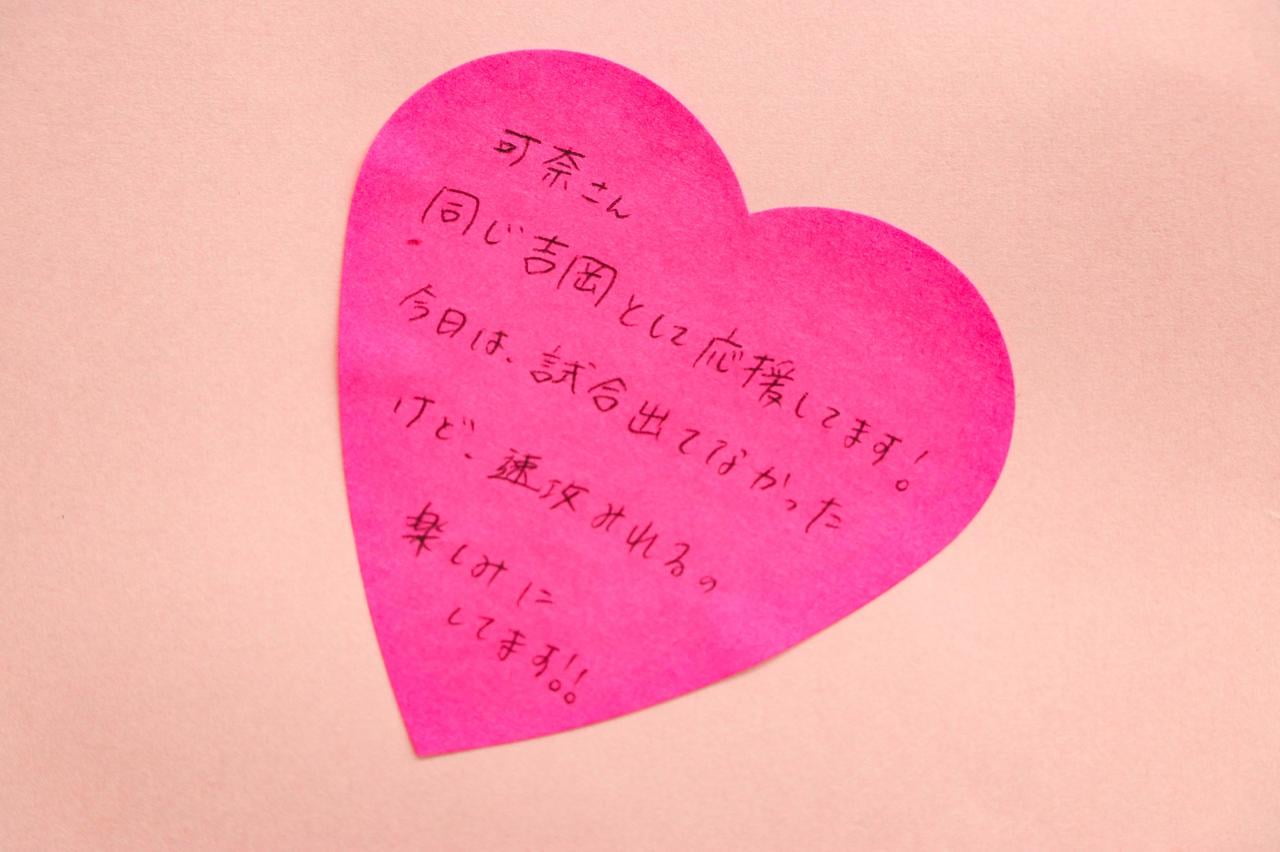 可奈さん
同じ吉岡として応援してます!
今日は、試合出てなかった
けど、速攻みれるの
楽しみに
してます!!